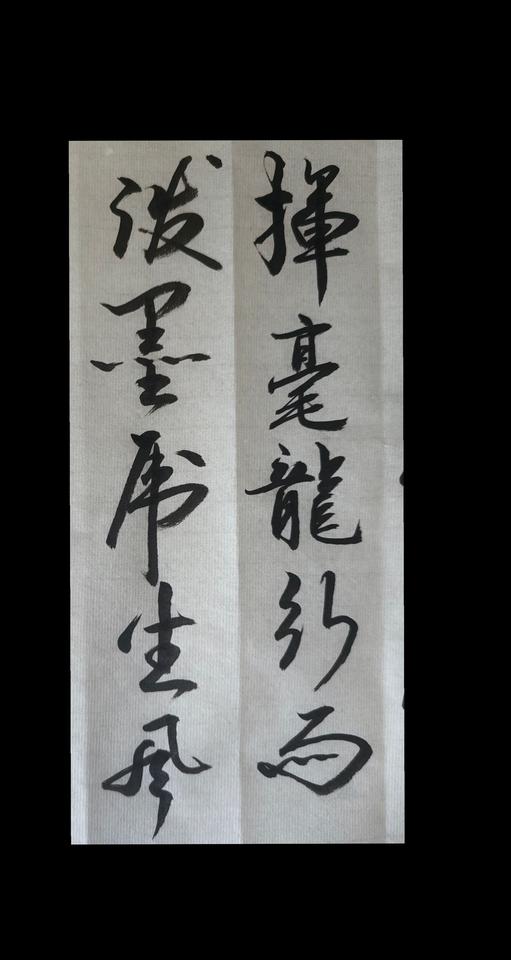 揮毫龍行雨
潑墨虎生風